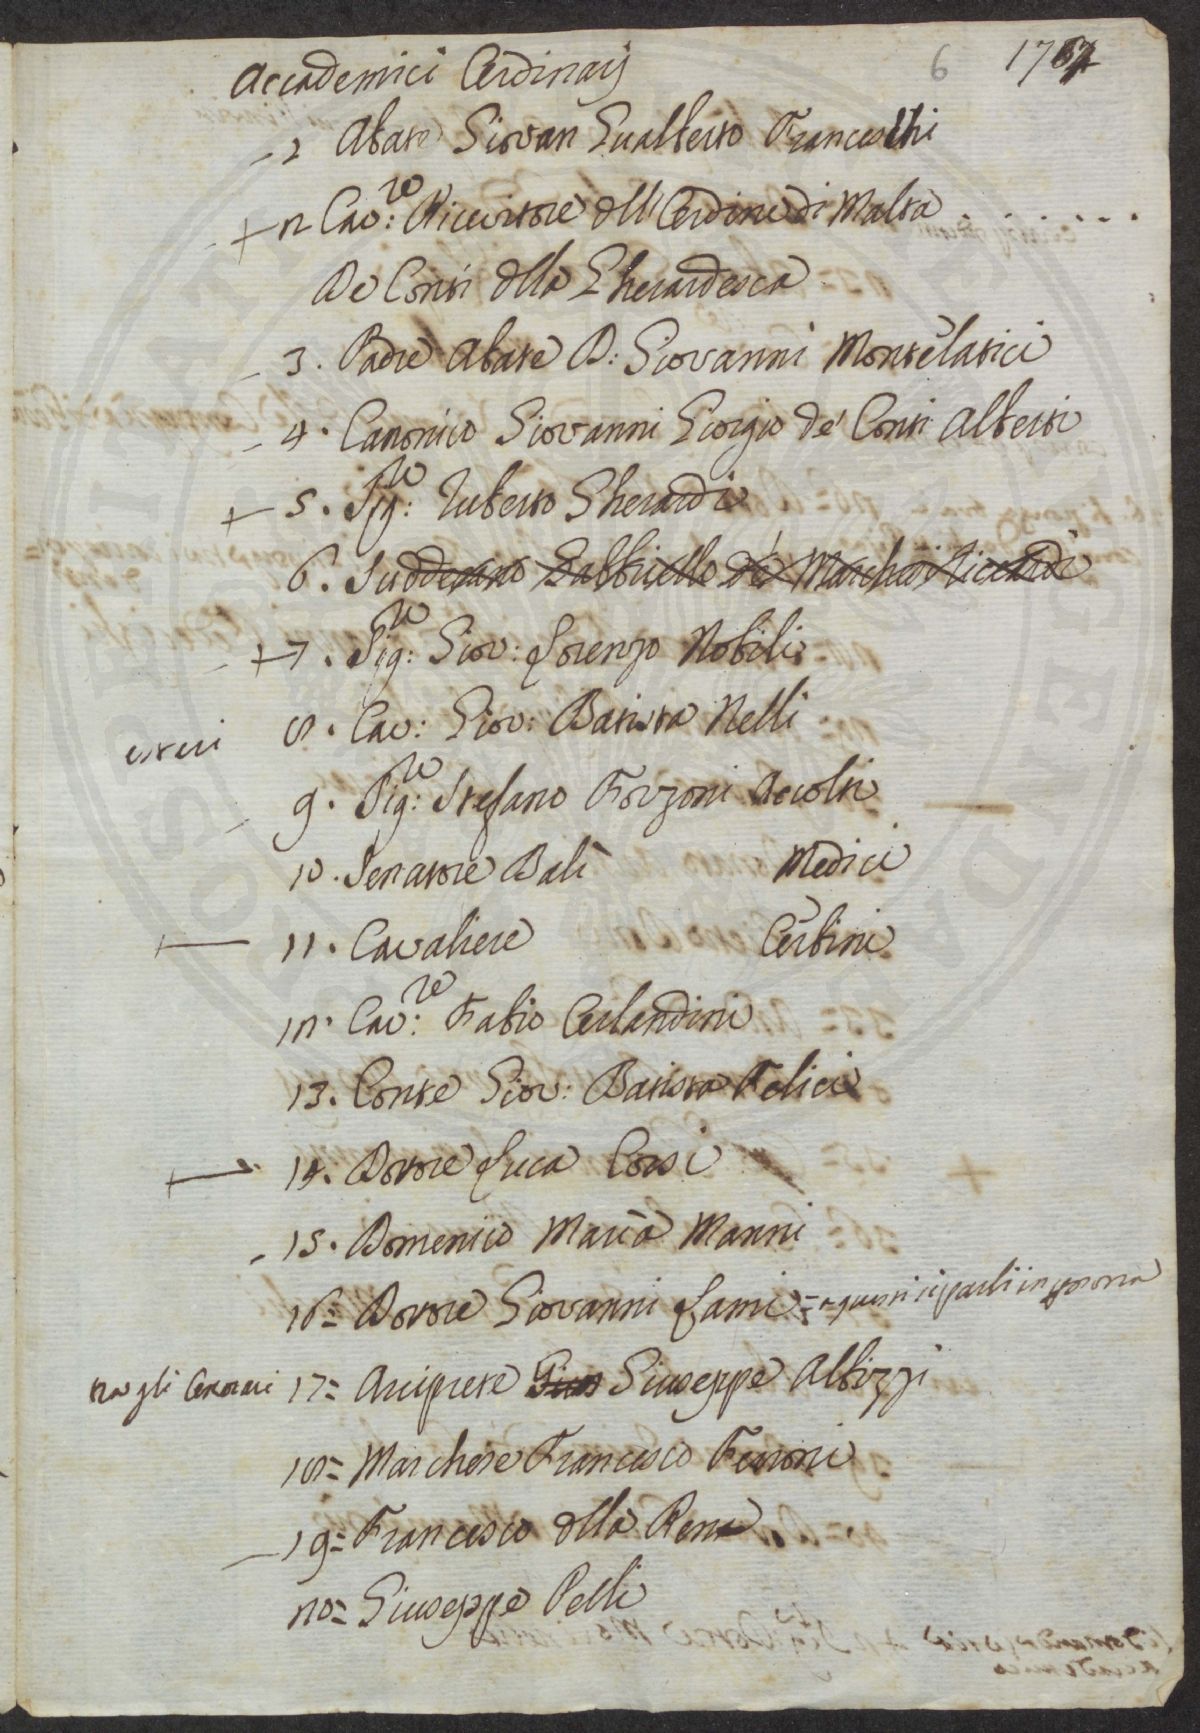 6 1767
Accademici Ordinarj
1 Abate Giovan Gualberto Franceschi
2 Cav:re Ricevitore dell'Ordine di Malta
De Conti della Gherardesca
3. Padre Abate D: Giovanni Montelatici
4. Canonico Giovanni Giorgio de' Conti Alberti
5. Sig:re Uberto Gherardi
6. Suddecano Gabbriello de' Marchesi Riccardi
7. Sig:re Giov: Lorenzo Nobili
esteri 8. Cav: Giov: Batista Nelli
9. Sig:re Stefano Forzoni Accolti
10. Senatore Balì Medici
11. Cavaliere Orbini
12. Cav:re Fabio Orlandini
13. Conte Giov: Batista Felici
14. Dotore Luca Corsi
15. Domenico Maria Manni
16= Dotore Giovanni Lami = a questi si parli in persona
tra gli Onorari 17= Arciprete Giuseppe Albizzi
18= Marchese Francesco Feroni
19= Francesco della Rena
20= Giuseppe Pelli